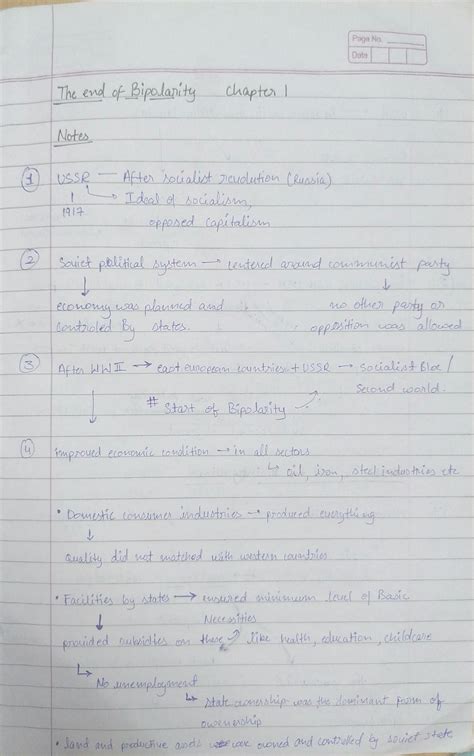 Page No.
Date
The end of Bipolarity Chapter 1
Notes
① USSR — After socialist revolution (Russia)
1917 → Ideal of socialism,
opposed capitalism
② Soviet political system → centered around communist party
↓ ↓
economy was planned and no other party or
controled By states. opposition was allowed
③ After WWII → east european countries + USSR → Socialist Bloc /
Second world.
↓ # Start of Bipolarity
④ improved economic condition → in all sectors
↳ oil, iron, steel industries etc
• Domestic consumer industries → produced everything
↓
Quality did not matched with western countries
• Facilities by states → ensured minimum level of Basic
↓ Necessities
provided subsidies on these like health, education, childcare
↳ No unemployment
↳ State ownership was the dominant form of
owenership
• land and productive were owned and controlled by soviet state